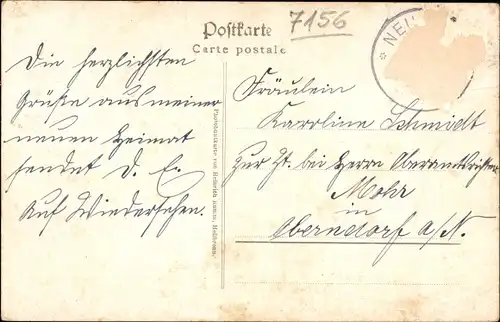 Postkarte
Carte postale
7156
NEU
Die herzlichsten
Grüße aus meiner
neuen Heimat
sendet D. E.
Auf Wiedersehen.
Fräulein
Karoline Schmidt
zur Zt. bei Herrn Oberamtsrichter
Mohr
in
Oberndorf a/N.
von Heinrich
Heilbronn.